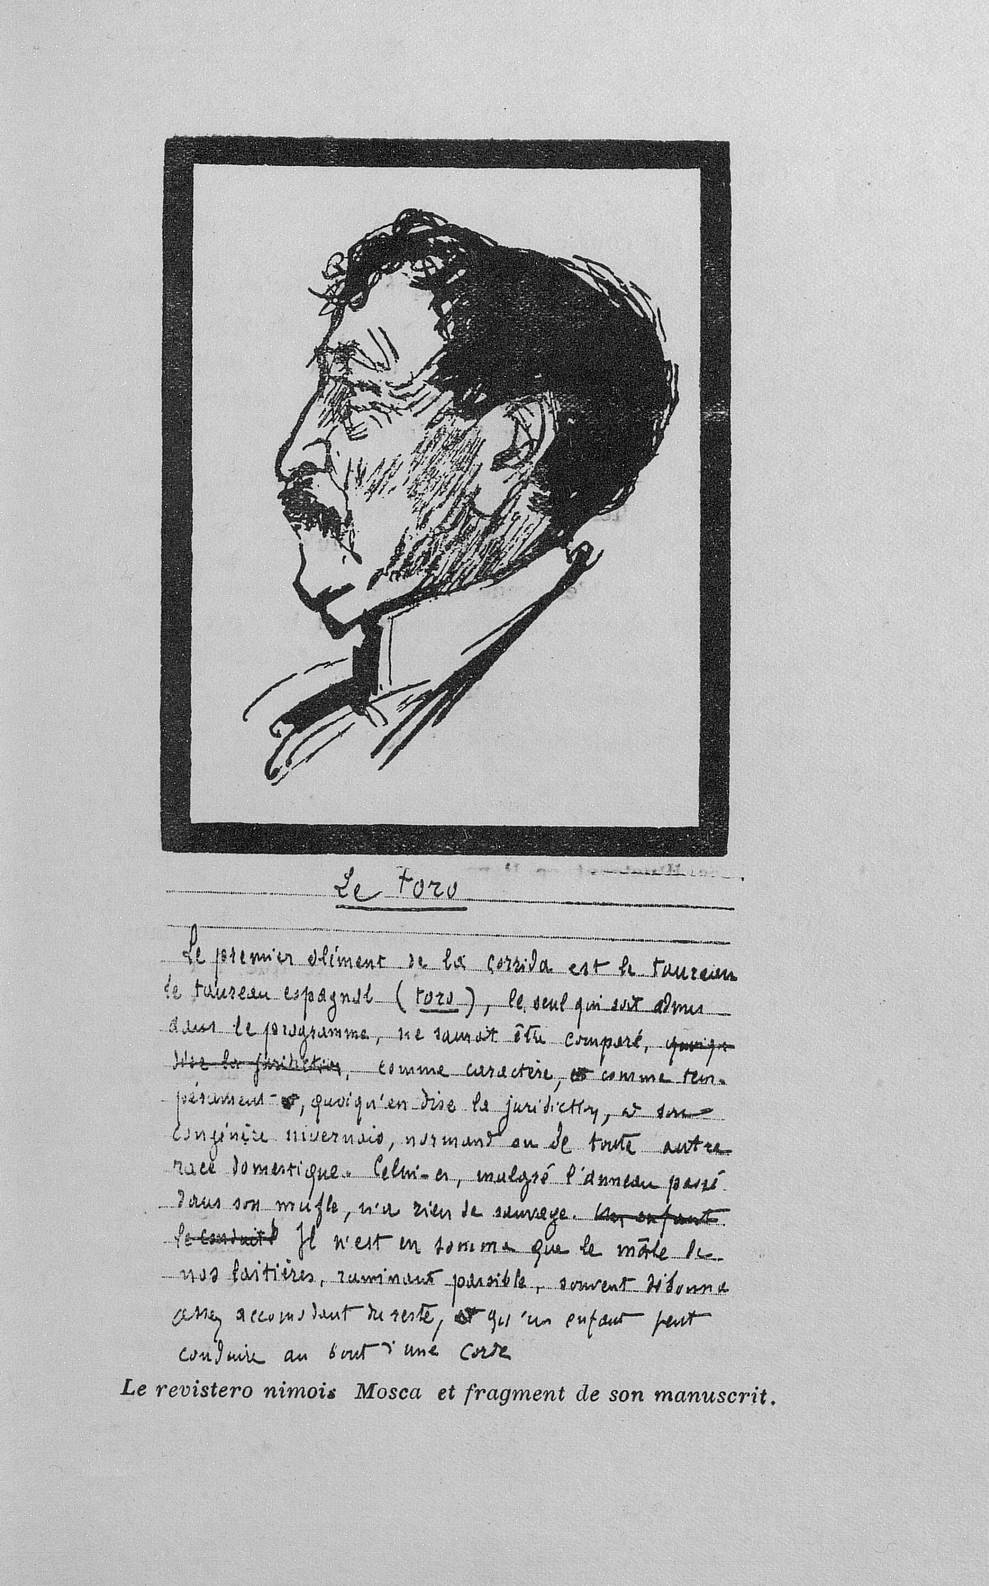 Le toro
Le premier élément de la corrida est le taureau
le taureau espagnol (toro), le seul qui soit admis
dans le programme, ne saurait être comparé, quoiqu'en
dise la juridiction, comme caractère, et comme tem-
pérament, quoiqu'en dise la juridiction, à son
congénère nivernais, normand ou de toute autre
race domestique. Celui-ci, malgré l'anneau passé
dans son mufle, n'a rien de sauvage. Un enfant
le conduit Il n'est en somme que le mâle de
nos laitières, ruminant paisible, souvent débonnaire
assez accomodant du reste, et qu'un enfant peut
conduire au bout d'une corde
Le revistero nimois Mosca et fragment de son manuscrit.